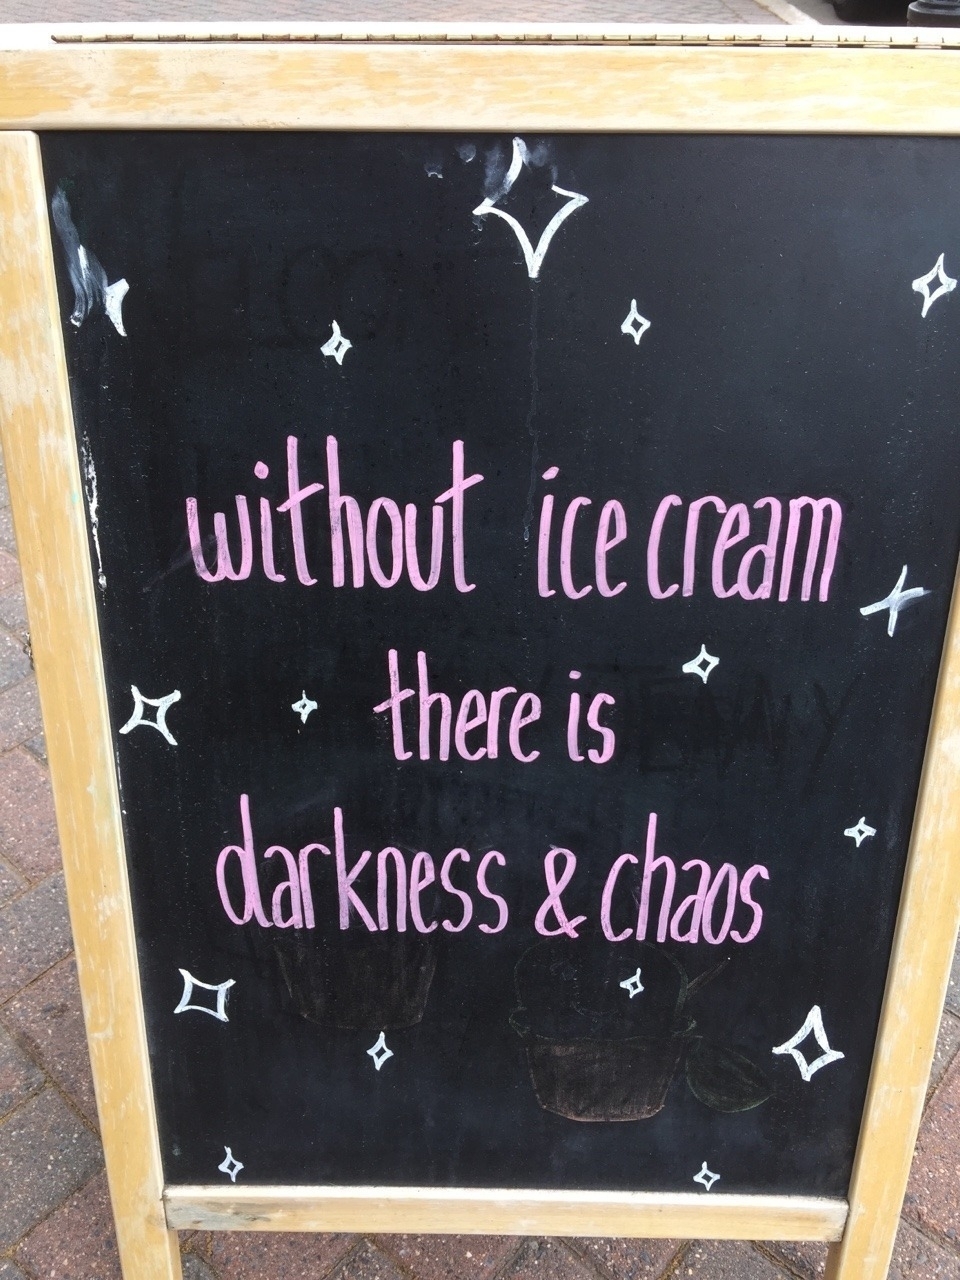 without ice cream
there is
darkness & chaos